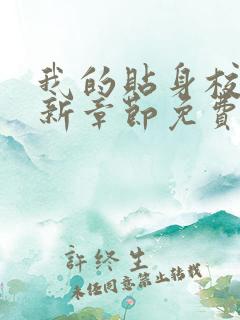 我的貼身校
新章節免費
許終生
未經同意禁止轉載